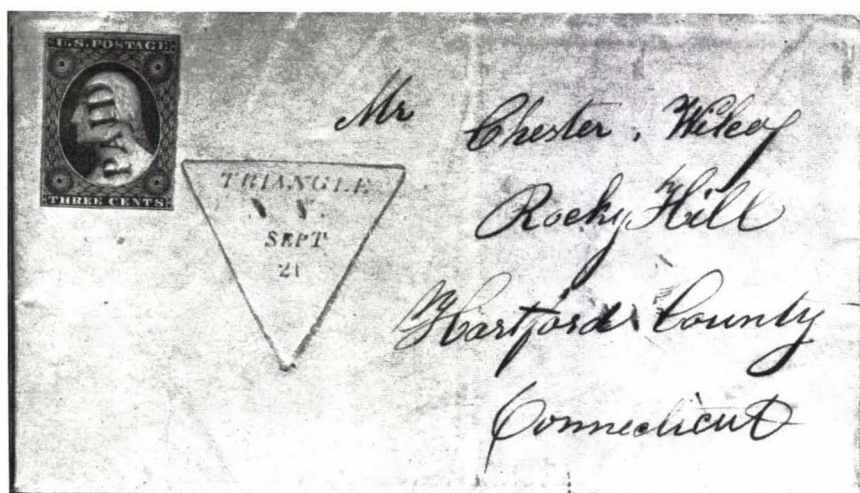 U.S. POSTAGE
PAID
THREE CENTS
TRIANGLE
N. Y.
SEPT
21
Mr Chester. Wilcox
Rocky Hill
Hartford County
Connecticut